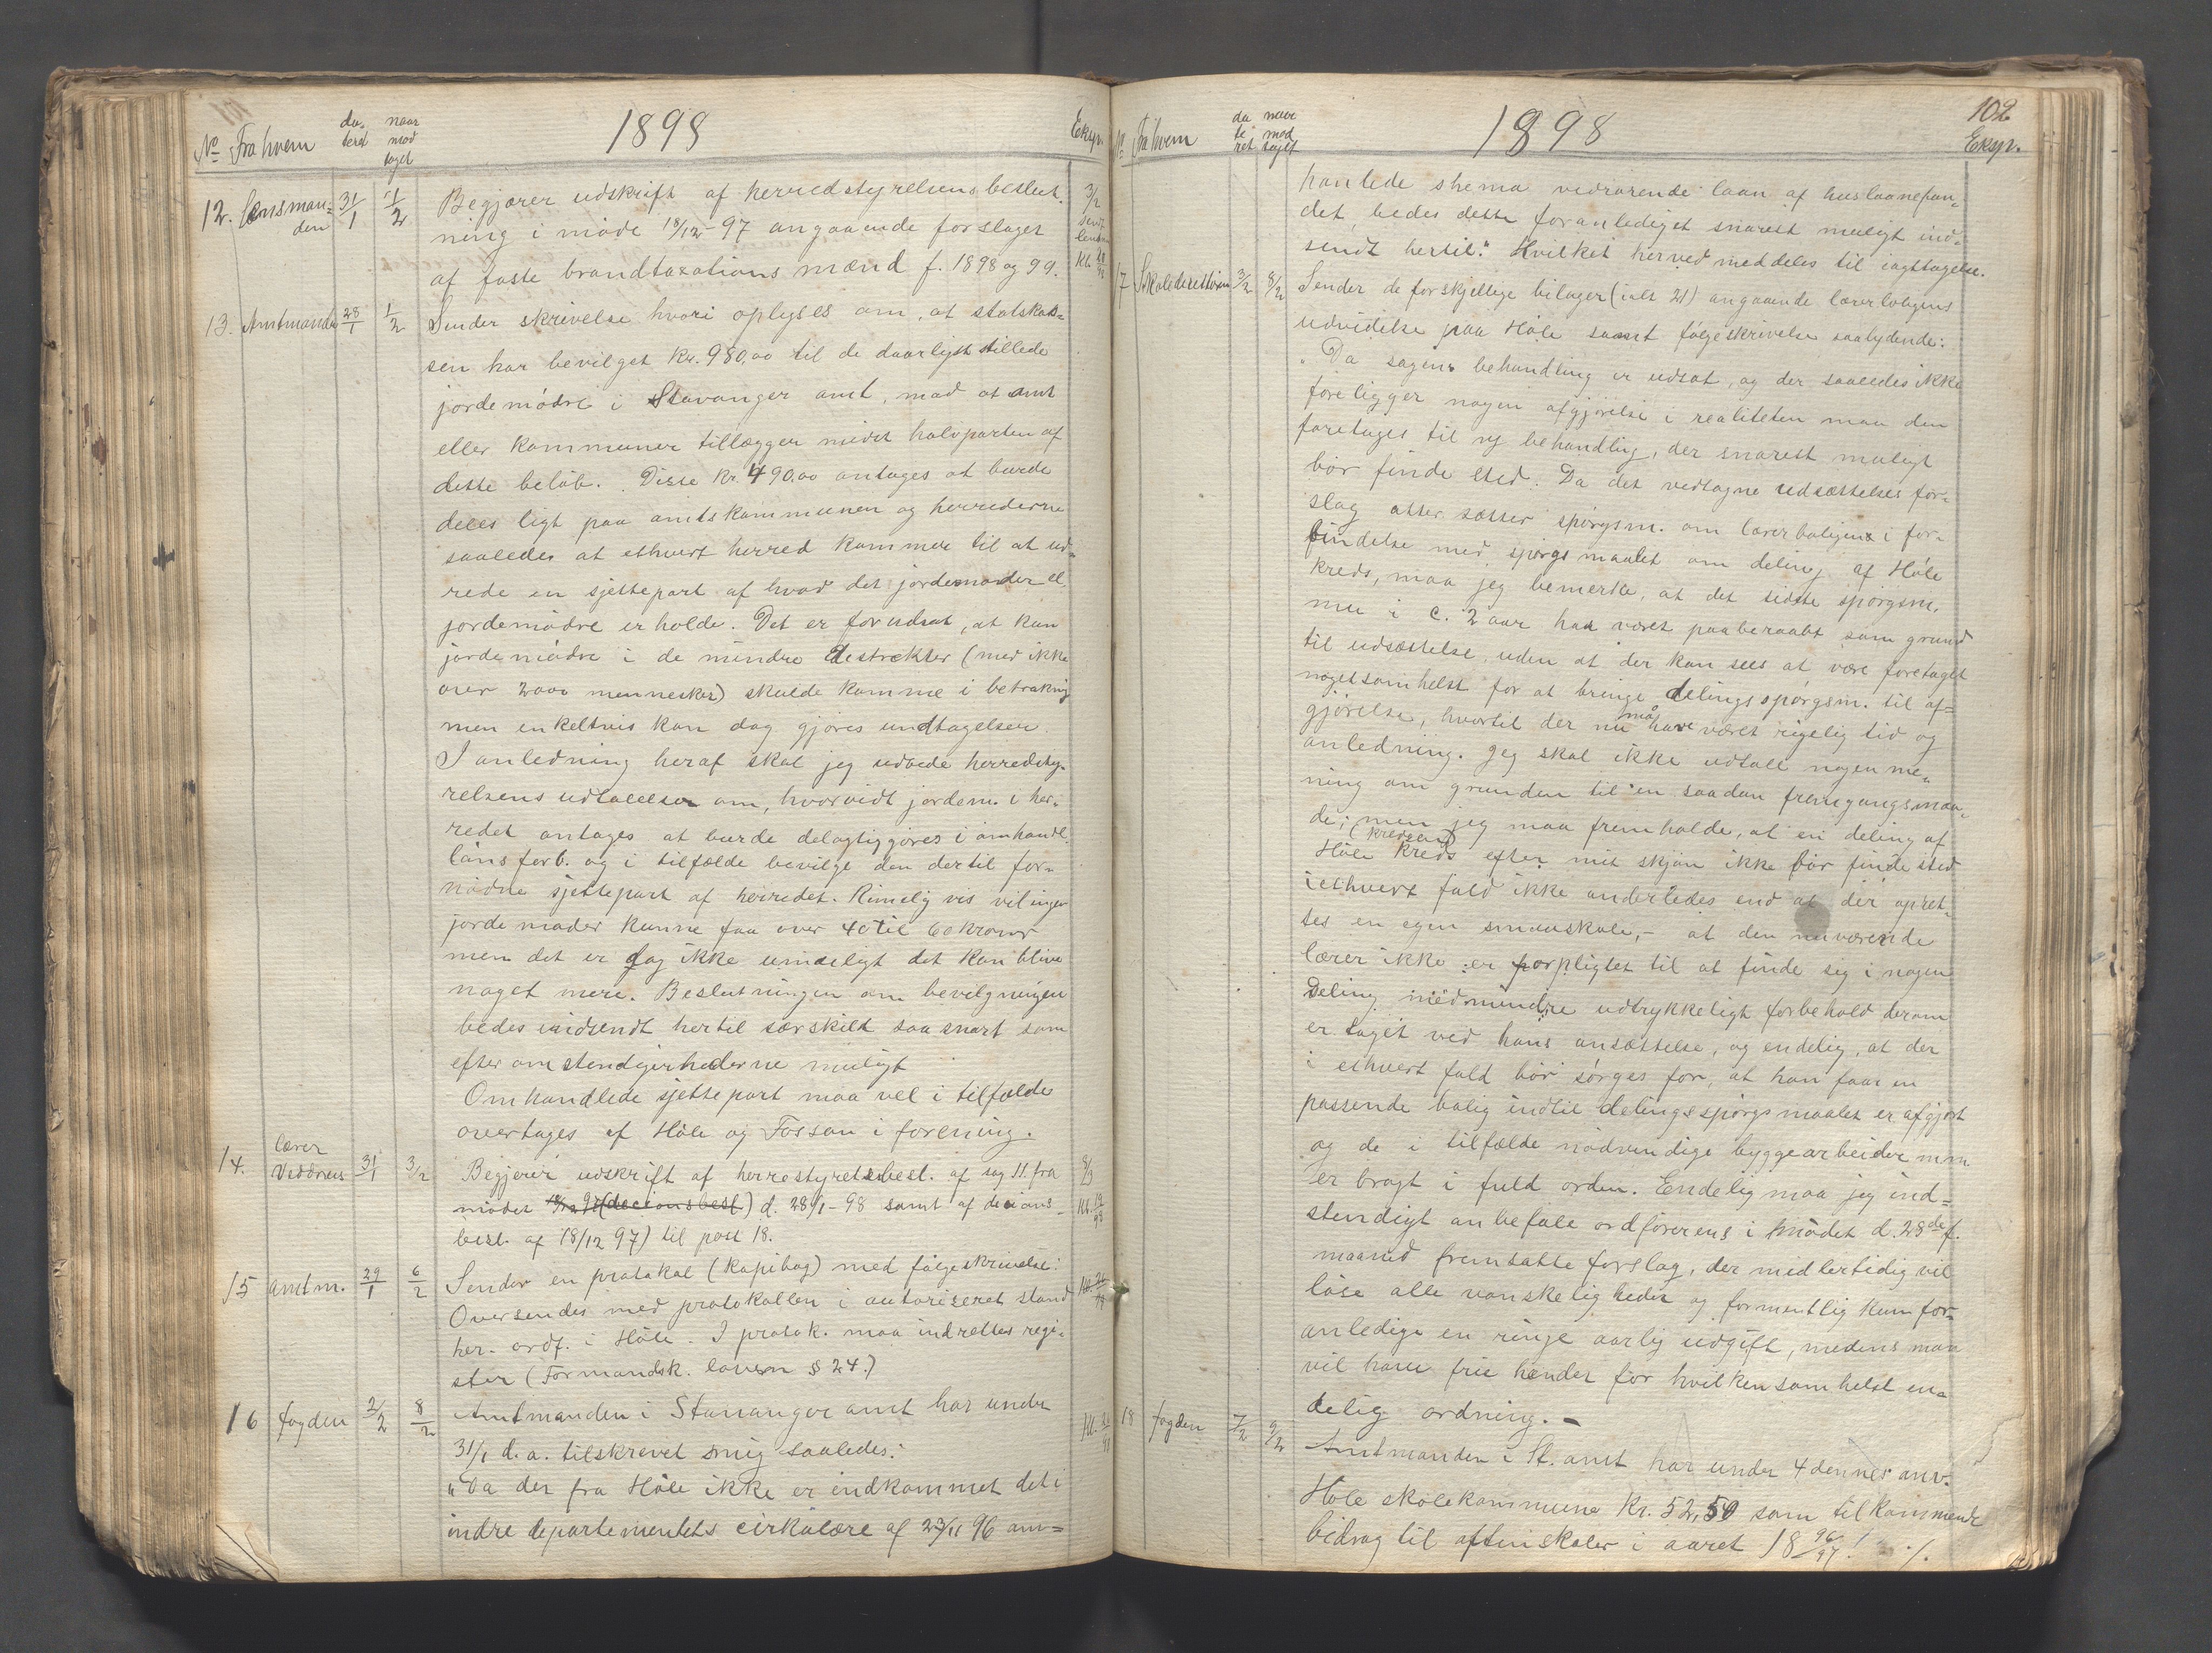 1898
No Fra hvem da- teret naar mod taget Eksp.
12. Lensman- den 31/1 1/2 Begjærer udskrift af herredstyrelsens beslut- 3/2
ning i møde 18/12-97 angaaende forslaget
af faste brandtaxations mænd f. 1898 og 99.
13. Amtmanden 28/1 1/2 Sender skrivelse hvori oplyses om, at statskas-
sen har bevilget Kr. 980,00 til de daarligst stillede
jordemødre i Stavanger amt, mod at amt
eller kommuner tillægger mindst halvparten af
dette beløb. Disse Kr. 490,00 antages at burde
deles ligt paa amtskommunen og herrederne
saaledes at ethvert herred kommer til at ud-
rede en sjettepart af hvad det jordemoder el.
jordemødre erholde. Det er forudsat, at kun
jordemødre i de mindre destrekter (med ikke
over 2000 mennesker) skulde komme i betrakning
men enkeltvis kan dog gjøres undtagelser.
I anledning heraf skal jeg udbede herredsty-
relsens udtalelser om, hvorvidt jordem. i her-
redet antages at burde delagtiggjøres i omhandl.
lønsforb. og i tilfælde bevilge den dertil for-
nødne sjettepart af herredet. Rimelig vis vil ingen
jordemoder kunne faa over 40 til 60 kroner
men det er dog ikke umuligt det kan blive
noget mere. Beslutningen om bevilgningen
bedes indsendt hertil særskilt saa snart som
efter omstendigerhederne muligt
Omhandlede sjettepart maa vel i tilfælde
overtages af Høle og Fossan i forening.
14. Lærer 31/1 3/2 Begjærer udskrift af herrestyrelsebesl. af sag 11. fra 8/3
mødet 18/12 97 (decionsbesl) d. 28/1-98 samt af decions-
besl. af 18/12 97) til post 18.
15 amtm. 29/1 6/2 Sender en protokol (kopibog) med følgeskrivelse:
Oversendes med protokollen i autoriseret stand
her. ordf. i Høle. I protok. maa indrettes regi-
ster (Formandsk. loven § 24.)
16 fogden 2/2 8/2 Amtmanden i Stavanger amt har under
31/1 d. a. tilskrevet mig saaledes:
"Da der fra Høle ikke er indkommet det i
indre departementets cirkulære af 23/11 96 om-
1898
102
No Fra hvem da te ret naar mod taget Eksp.
hanlede shema vedrørende laan af huslaanefon-
det, bedes dette foranlediget snarest muligt ind-
sendt hertil." Hvilket herved meddeles til iagttagelse.
17 Skoledirektøren 3/2 8/2 Sender de forskjellige bilager (ialt 21) angaaende lærerboligens
udvidelse paa Høle samt følgeskrivelse saalydende:
"Da sagens behandling er udsat, og der saaledes ikke
foreligger nogen afgjørelse i realiteten maa den
foretages til ny behandling, der snarest muligt
bør finde sted. Da det vedtagne udsættelses for-
slag atter sætter spørgsm. om lærerboligens i for-
bindelse med spørgsmaalet om deling af Høle
kreds, maa jeg bemerke, at det sidste spørgsm.
nu i c. 2 aar har været paaberaabt som grund
til udsættelse, uden at der kan sees at være foretaget
nogetsomhelst for at bringe delingsspørgsm. til af-
gjørelse, hvortil der nu må have været rigelig tid og
anledning. Jeg skal ikke udtale nogen me-
ning om grunden til en saadan fremgangsmaa-
de; men jeg maa fremholde, at en deling af
Høle kreds (kredsen) efter mit skjøn ikke bør finde sted
iethvert fald ikke anderledes end at der opret-
tes en egen smaaskole, - at den nuværende
lærer ikke er forpligtet til at finde sig i nogen
deling medmindre udtrykkeligt forbehold derom
er taget ved hans ansættelse, og endelig, at der
i ethvert fald bør sørges for, at han faar en
passende bolig indtil delingsspørgsmaalet er afgjort
og de i tilfælde nødvendige byggearbeider m.m
er bragt i fuld orden. Endelig maa jeg ind-
stendigt anbefale ordførerens i mødet d. 28de f.
maaned fremsatte forslag, der midlertidig vil
løse alle vanskeligheder og formentlig kun for-
anledige en ringe aarlig udgift, medens man
vil have frie hænder for hvilkensomhelst en-
delig ordning. -
18 fogden 7/2 9/2 Amtmanden i St. amt har under 4 dennes anv.
Høle skolekommune Kr. 52,50 som tilkommende
bidrag til aftenskoler i aaret 1896/97! ./.